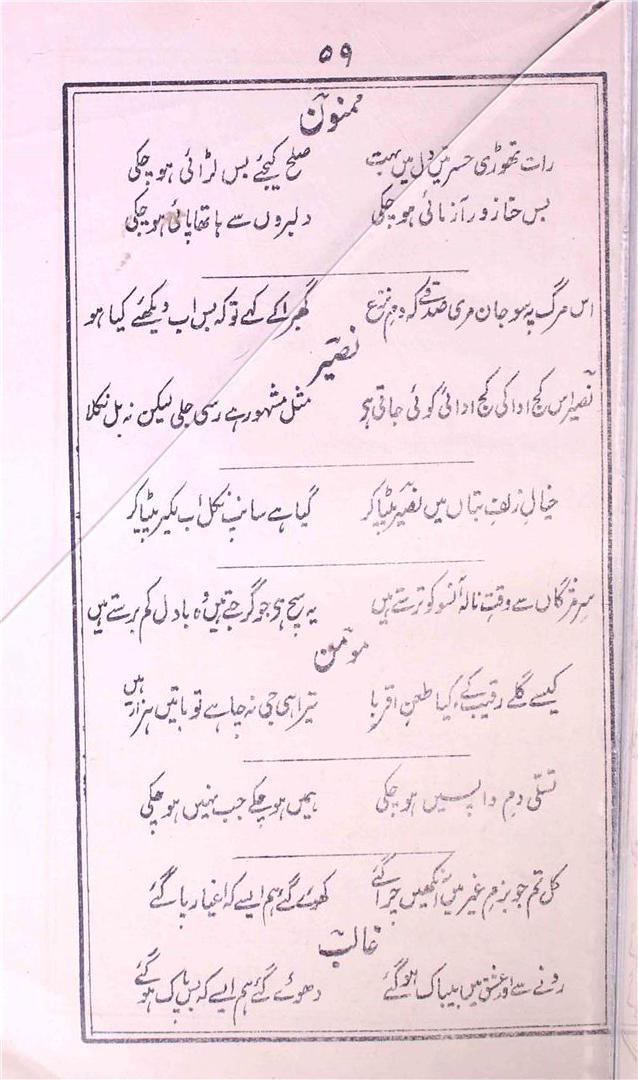 ۵۹
ممنون
رات تھوڑی حسرتیں دل میں بہت صلح کیجئے بس لڑائی ہو چکی
بس حنا زور آزمائی ہو چکی دلبروں سے ہاتھا پائی ہو چکی
اس مرگ پہ سو جان مری صدقے کہ دم نزع گھبرا کے کہے تو کہ بس اب دیکھئے کیا ہو
نصیر
نصیر اس کج ادا کی کج ادائی کوئی جاتی ہی مثل مشہور ہے رسی جلی لیکن نہ بل نکلا
خیال زلف بتاں میں نصیر پیٹا کر گیا ہے سانپ نکل اب لکیر پیٹا کر
سر مژگاں سے وقت نالہ آنسو کو ترستے ہیں یہ سچ ہی جو گرجتے ہیں وہ بادل کم برستے ہیں
مومن
کیسے گلے رقیب کے کیا طعن اقربا تیرا سی جی نہ چاہے تو باتیں ہزار ہیں
تسلی دم واپسیں ہو چکی ہمیں ہو چکے جب نہیں ہو چکی
کل تم جو بزم غیر میں آنکھیں چرا گئے کھوئے گئے ہم ایسے کہ اغیار پا گئے
غالب
رونے سے اور عشق میں بیباک ہو گئے دھوئے گئے ہم ایسے کہ بس پاک ہو گئے